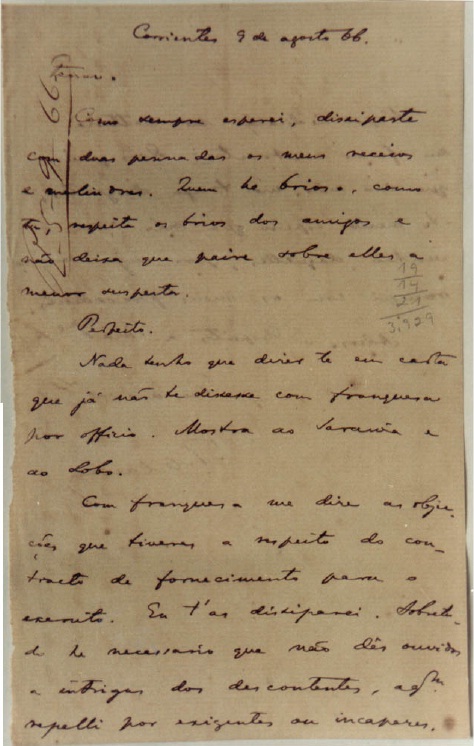 Corrientes 9 de agosto 66.
Como sempre esperei, dissipaste
com duas pennadas os meus receios
e melindres. Quem he brioso, como
tu, respeita os brios dos amigos e
não deixa que paire sobre elles a
menor suspeita.
Perfeito.
Nada tenho que dizer te em carta
que já não te dissesse com franquesa
por officio. Mostra ao Saraiva e
ao Lobo.
Com franquesa me dize as obje-
ções que tiveres a respeito do con-
tracto de fornecimento para o
exercito. Eu t'as dissiparei. Sobretu-
do he necessario que não dês ouvidos
a intrigas dos descontentes, a qm
repelli por exigentes ou incapazes.
19
14
3,929